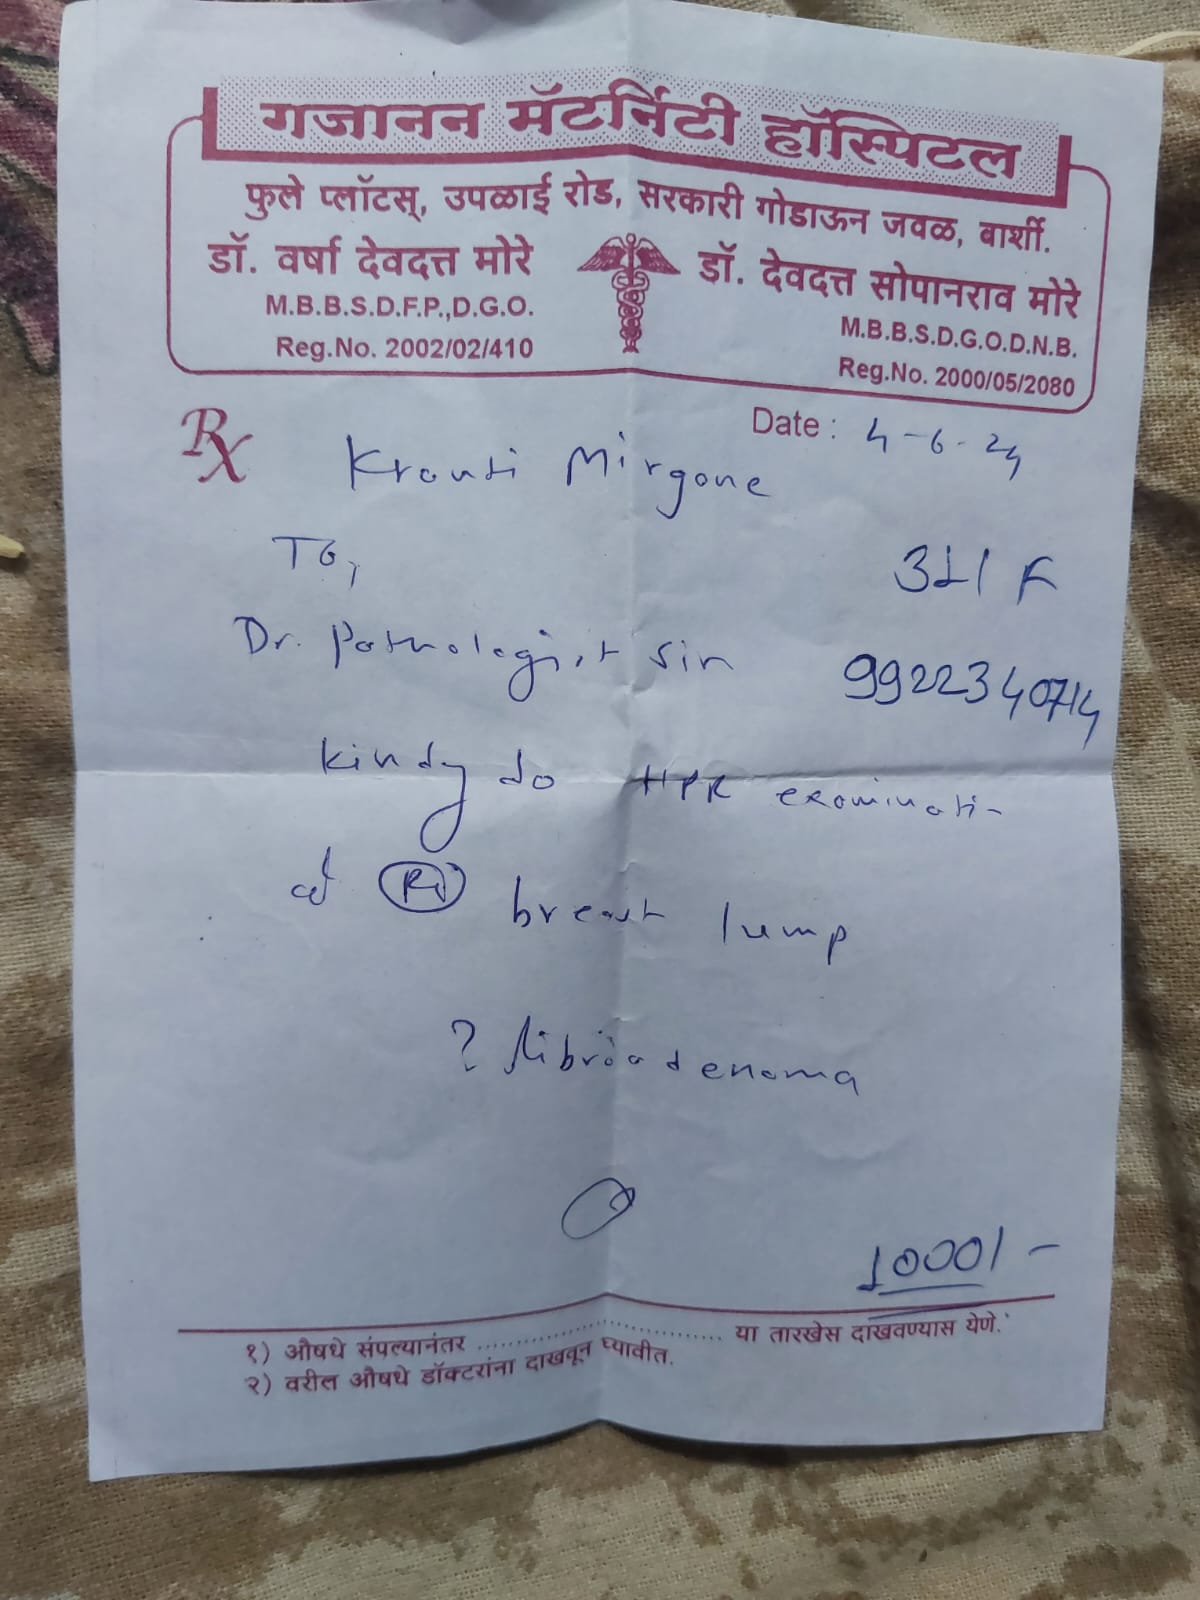 गजानन मॅटर्निटी हॉस्पिटल
फुले प्लॉटस्, उपळाई रोड, सरकारी गोडाऊन जवळ, बार्शी.
डॉ. वर्षा देवदत्त मोरे
M.B.B.S.D.F.P.,D.G.O.
Reg.No. 2002/02/410
डॉ. देवदत्त सोपानराव मोरे
M.B.B.S.D.G.O.D.N.B.
Reg.No. 2000/05/2080
Rx
Date : 4-6-24
Kranti Mirgane
To,
Dr. Pathologist sir
9922340714
kindy do HPR examinati-
of Rt breast lump
? fibroadenoma
1000/-
१) औषधे संपल्यानंतर ........................... या तारखेस दाखवण्यास येणे.
२) वरील औषधे डॉक्टरांना दाखवून घ्यावीत.